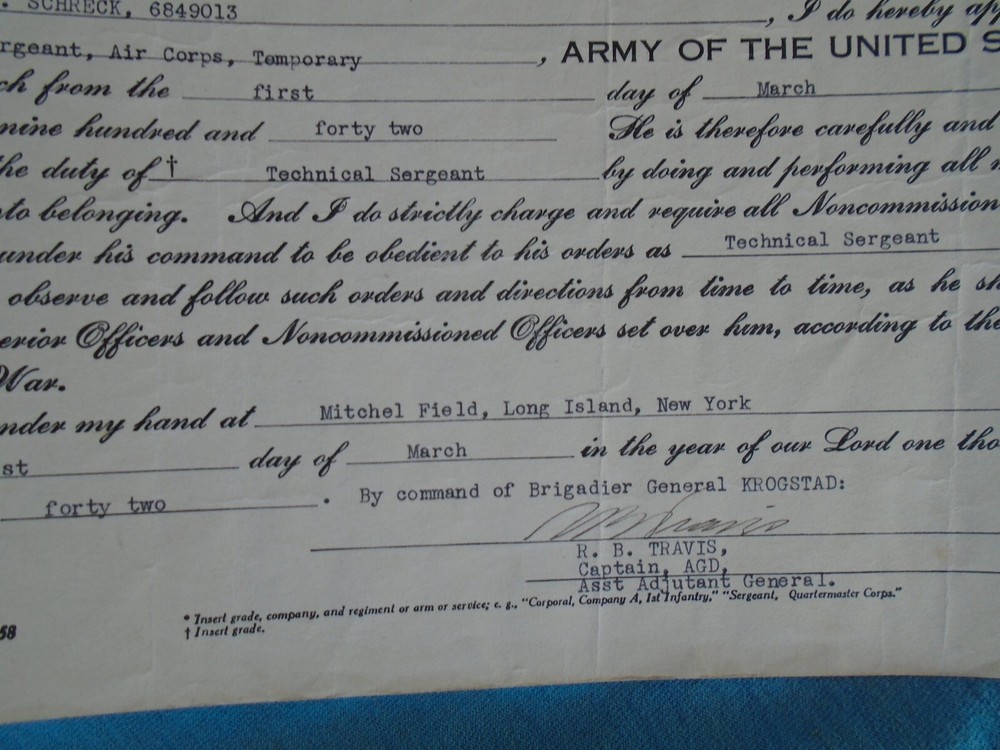 . SCHRECK, 6849013, I do hereby app
rgeant, Air Corps, Temporary, ARMY OF THE UNITED S
ch from the first day of March
nine hundred and forty two He is therefore carefully and
he duty of † Technical Sergeant by doing and performing all
nto belonging. And I do strictly charge and require all Noncommission
under his command to be obedient to his orders as Technical Sergeant
observe and follow such orders and directions from time to time, as he sh
erior Officers and Noncommissioned Officers set over him, according to the
War.
nder my hand at Mitchel Field, Long Island, New York
st day of March in the year of our Lord one tho
forty two. By command of Brigadier General KROGSTAD:
R. B. TRAVIS,
Captain, AGD,
Asst Adjutant General.
* Insert grade, company, and regiment or arm or service; e. g., "Corporal, Company A, 1st Infantry," "Sergeant, Quartermaster Corps."
† Insert grade.
58